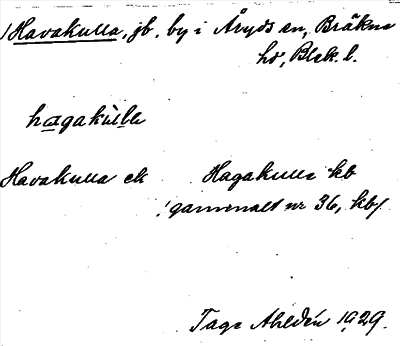 Havakulla, jb. by i Åryds sn, Bräkne
hd, Blek. l.
hagakùlle
Havakulla ek Hagakulle kb
gammalt nr 36, kb
Tage Ahldén 1929.